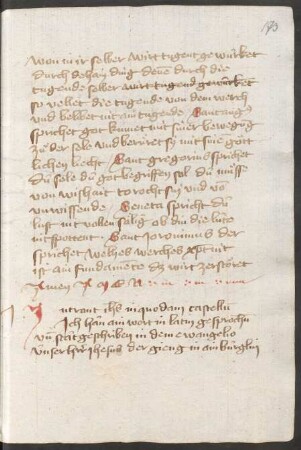 won in ir selber wirt tugent gewürket
durch dehain ding denne durch die
tugende selber wirt tugend gewürket
so vellet die tugende von dem werch
und belibet nit ain tugende Sant aug9
sprichet got kumet mit siner bewegung
zů der sele und berüret sy mit sine göt
lichen liecht Sant gregorius sprichet
du sele du got begriffen sol du můss
von wishait torocht sy und von
unwissende Seneca sprichet du
lust nit vollen sälig ob din die lüte
nit spottent Sant Jeronimus der
sprichet welhes werches xpc nit
ist ain fundamēte dz wirt zerstöret
Amen
Intravit ihs in quodam castellū
Ich han ain wort in latin gesprochn
un stat geschriben in dem ewangelio
unser her ihesus der gieng in ain bürglin